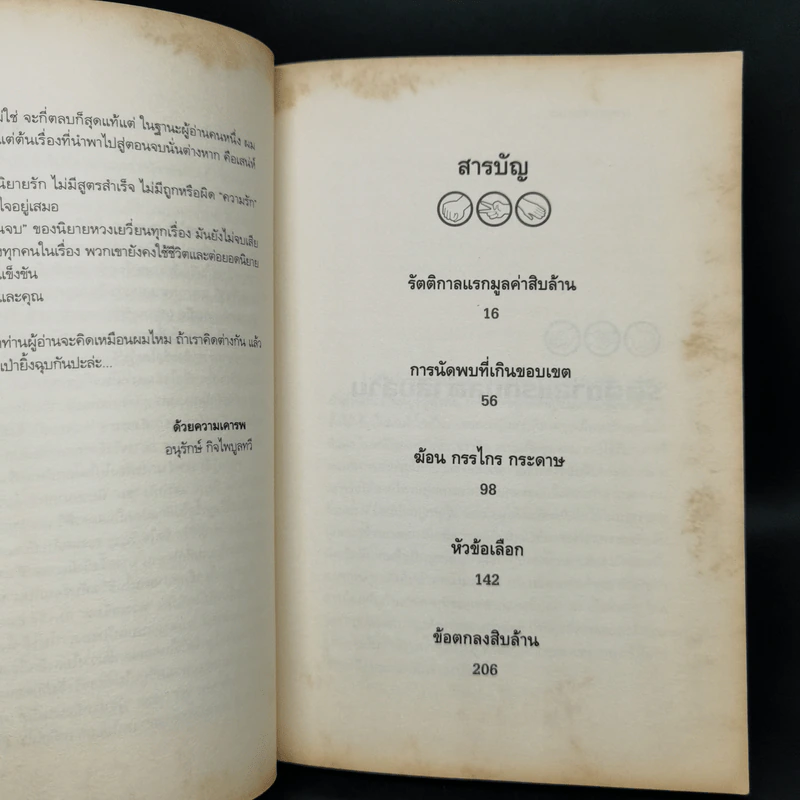 ใช่ จะกี่ตลบก็สุดแท้แต่ ในฐานะผู้อ่านคนหนึ่ง ผม
แต่ต้นเรื่องที่นำพาไปสู่ตอนจบนั่นต่างหาก คือเสน่ห์
นิยายรัก ไม่มีสูตรสำเร็จ ไม่มีถูกหรือผิด "ความรัก"
ใจอยู่เสมอ
นจบ" ของนิยายหวงเยวี่ยนทุกเรื่อง มันยังไม่จบเสีย
งทุกคนในเรื่อง พวกเขายังคงใช้ชีวิตและต่อยอดนิยาย
แข็งขัน
และคุณ
ท่านผู้อ่านจะคิดเหมือนผมไหม ถ้าเราคิดต่างกัน แล้ว
เป่ายิ้งฉุบกันปะล่ะ...
ด้วยความเคารพ
อนุรักษ์ กิจไพบูลทวี
สารบัญ
รัตติกาลแรกมูลค่าสิบล้าน
16
การนัดพบที่เกินขอบเขต
56
ฆ้อน กรรไกร กระดาษ
98
หัวข้อเลือก
142
ข้อตกลงสิบล้าน
206